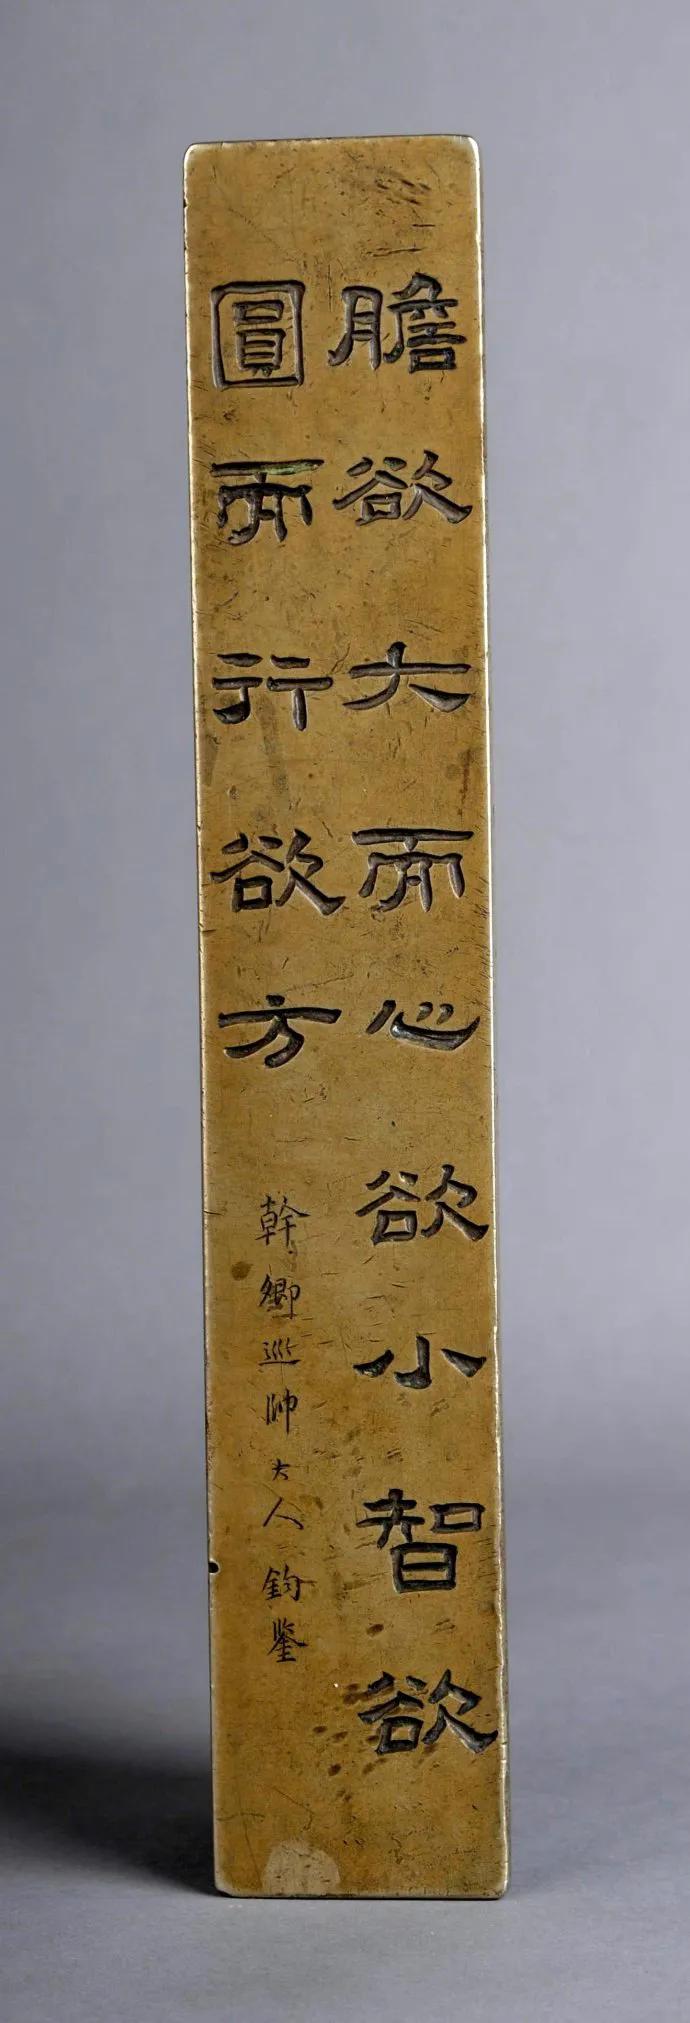 膽欲大而心欲小智欲
圓而行欲方
幹卿巡帥大人鈞鑒